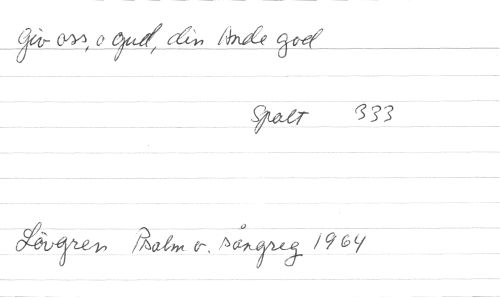 Giv oss, o gud, din Ande god
Spalt 333
Lövgren Psalm o. sångreg 1964